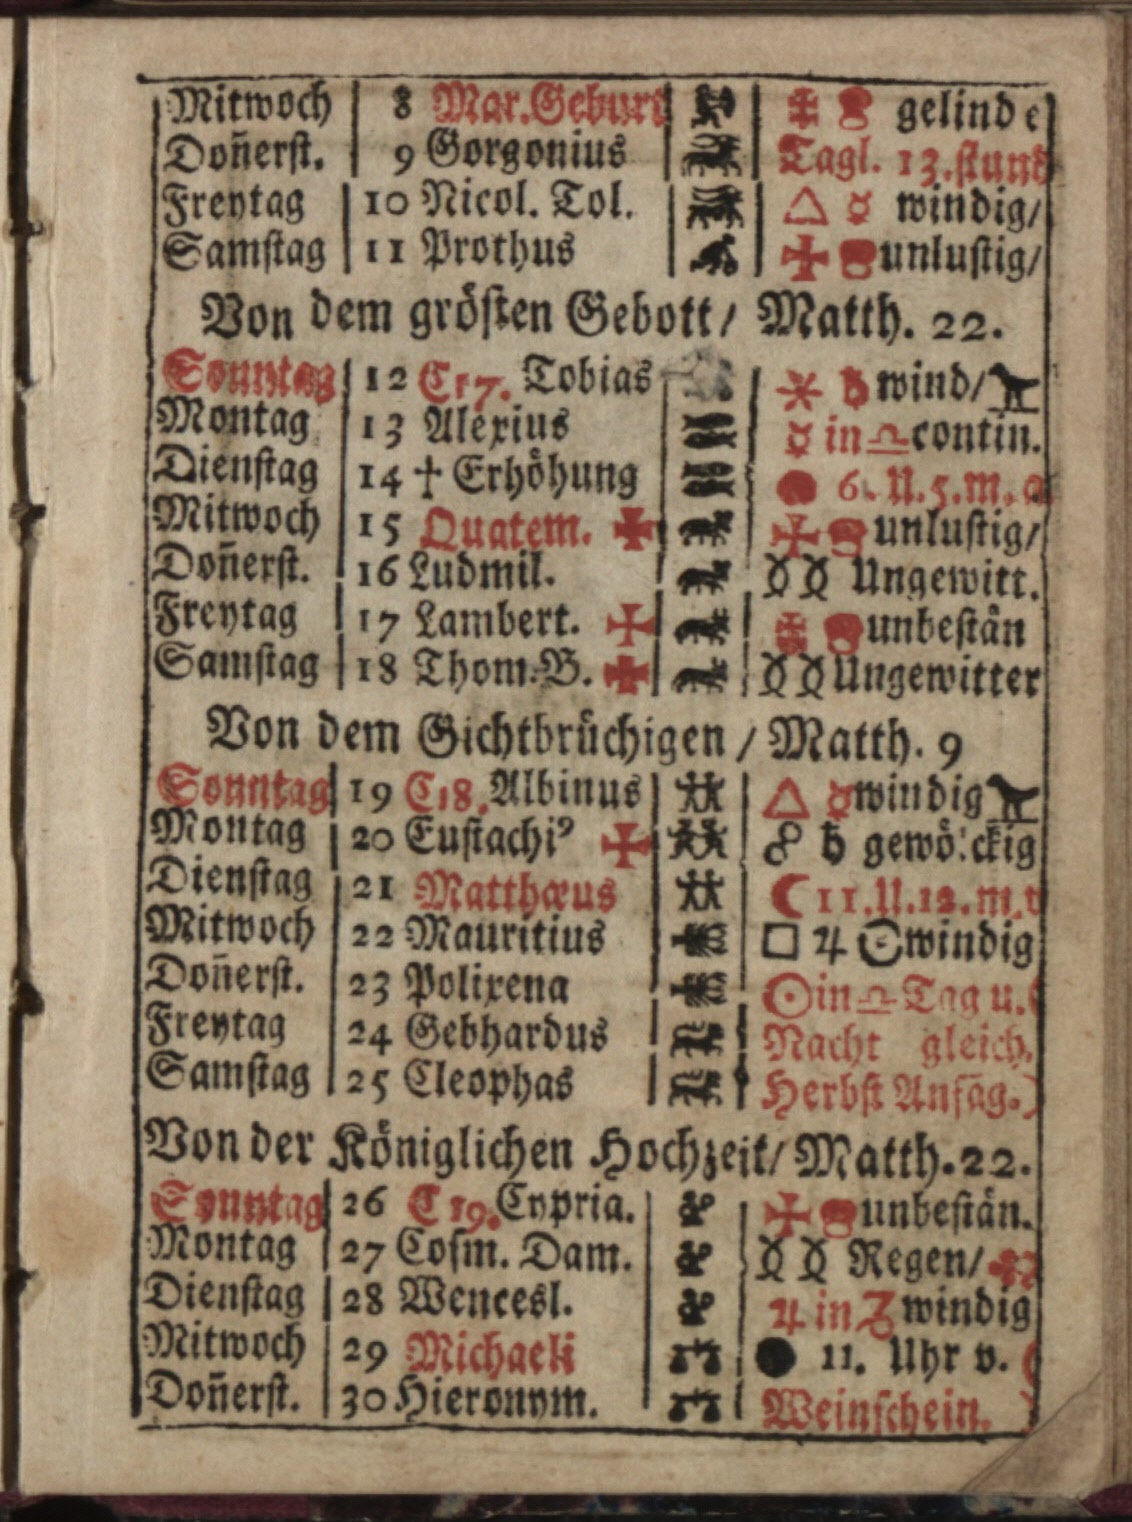 Mitwoch 8 Mar. Geburt gelinde
Don̄erſt. 9 Gorgonius Tagl. 13. ſtund
Freytag 10 Nicol. Tol. △ ☿ windig/
Samſtag 11 Prothus unluſtig/
Von dem gröſten Gebott/ Matth. 22.
Sonntag 12 C17. Tobias ⚹ ♄ wind/
Montag 13 Alexius ☿ in ♎ contin.
Dienſtag 14 † Erhöhung 6. U. 5. m.
Mitwoch 15 Quatem. unluſtig/
Don̄erſt. 16 Ludmil. Ungewitt.
Freytag 17 Lambert. unbeſtän
Samſtag 18 Thom. B. Ungewitter
Von dem Gichtbrüchigen / Matth. 9
Sonntag 19 C18. Albinus △ ☿ windig
Montag 20 Euſtachi⁹ ☍ ♄ gewölckig
Dienſtag 21 Matthæus ☾ 11. U. 12. m. v
Mitwoch 22 Mauritius □ ♃ ☉ windig
Don̄erſt. 23 Polixena ☉ in ♎ Tag u.
Freytag 24 Gebhardus Nacht gleich.
Samſtag 25 Cleophas Herbſt Anfāg.
Von der Königlichen Hochzeit/ Matth. 22.
Sonntag 26 C19. Cypria. unbeſtän.
Montag 27 Coſm. Dam. Regen/
Dienſtag 28 Wenceſl. ♃ in ♑ windig
Mitwoch 29 Michaeli ● 11. Uhr v.
Don̄erſt. 30 Hieronym. Weinſchein.